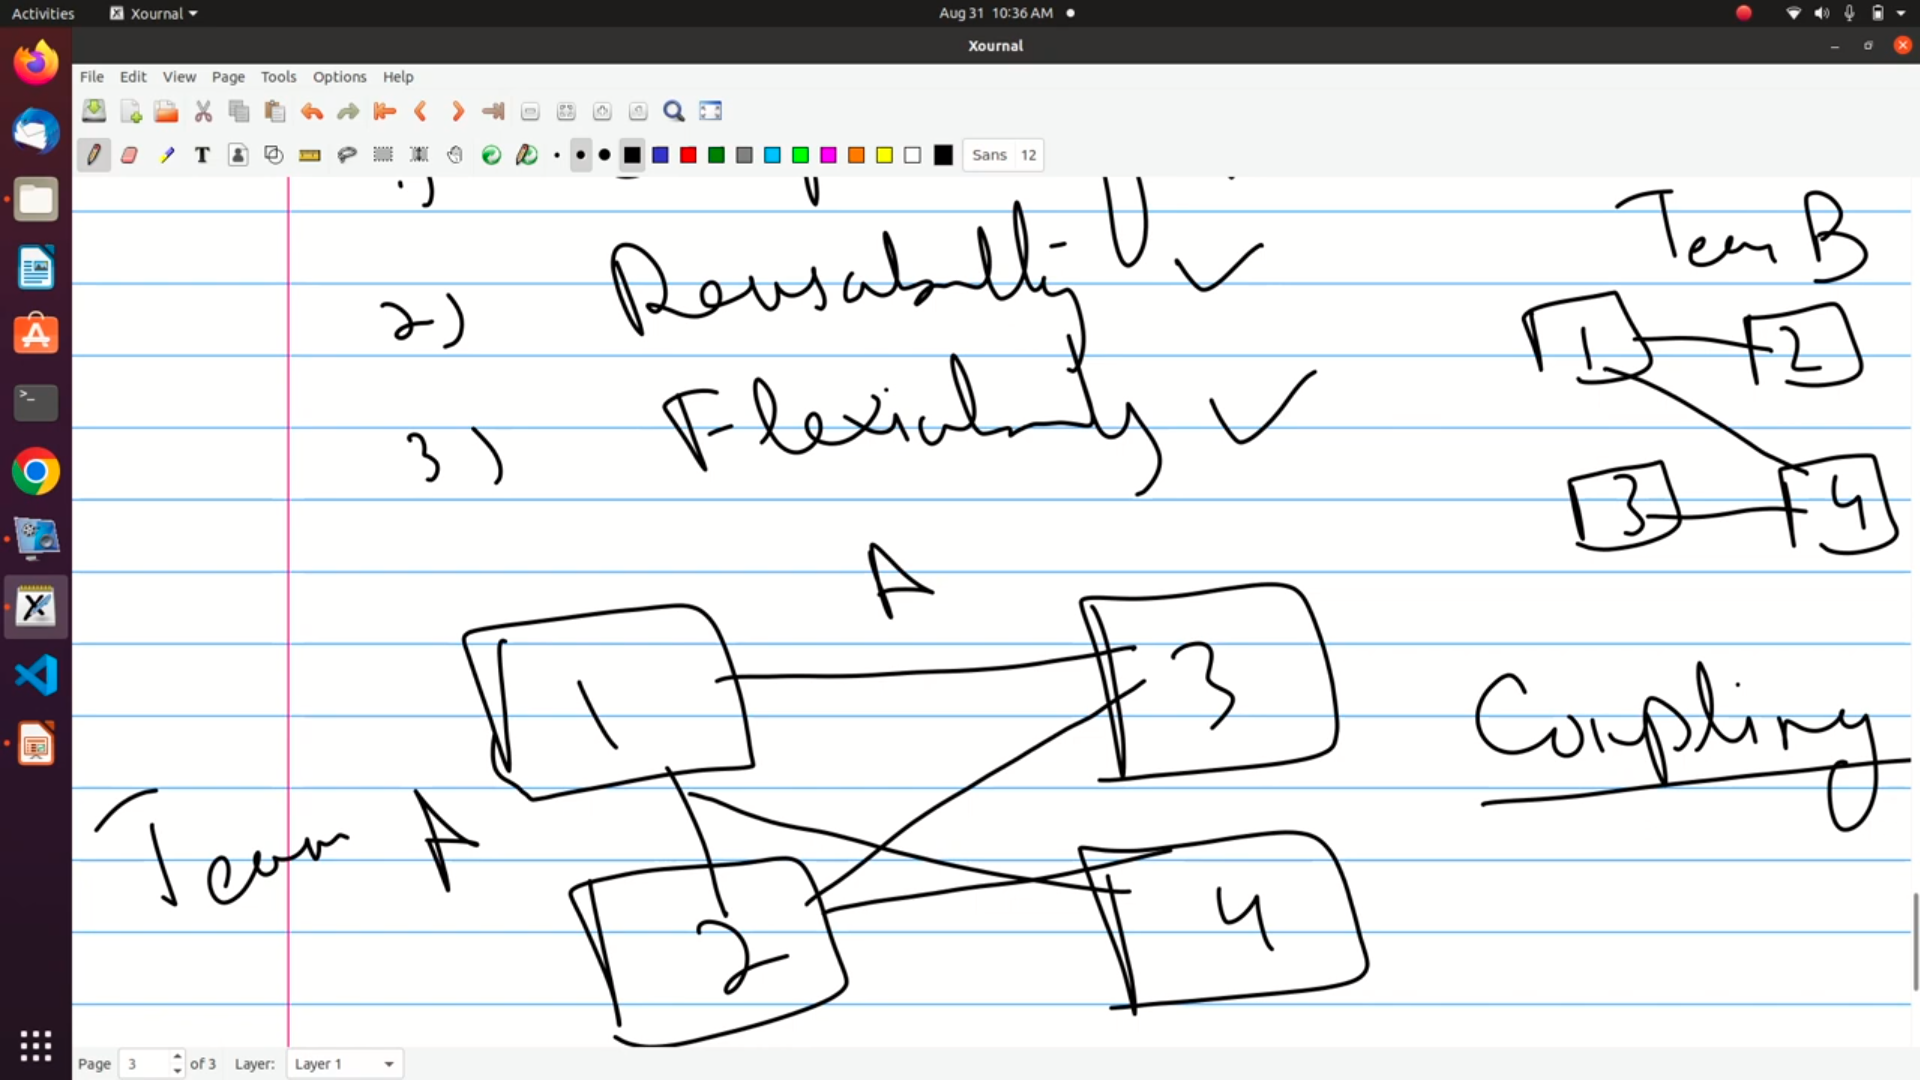 Activities Xournal Aug 31 10:36 AM
Xournal
File Edit View Page Tools Options Help
Sans 12
1)
Team B
2) Reusability
1 2
3) Flexiability
3 4
A
1 3
Coupling
Team A
2 4
Page 3 of 3 Layer: Layer 1